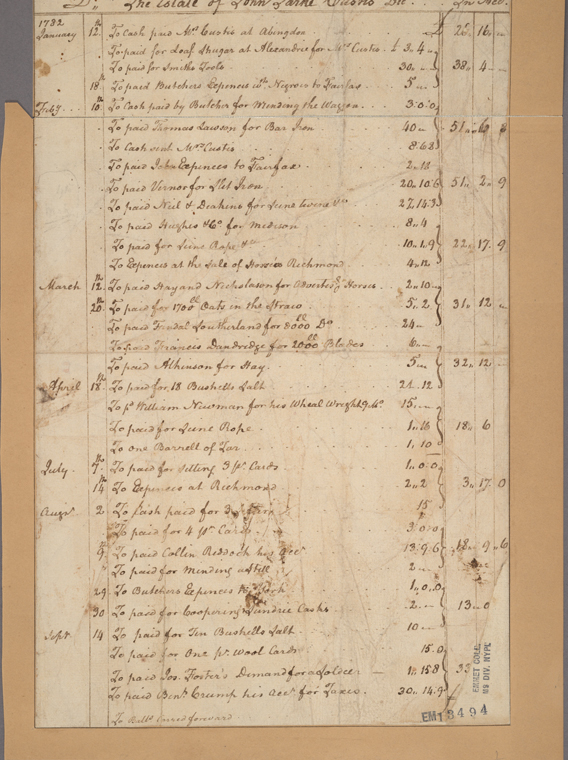 Dr. The Estate of John Parke Custis Dec.
1782
January 12th To Cash paid Mrs Custis at Abingdon 26 16
To paid for Loaf Shugar at Alexandria for Mrs Custis £ 3 4
To paid for Smiths Tools 30 38 4
18th To paid Butchers Expences wth Negroes to Fairfax 5
Feby 10th To Cash paid by Butcher for Mending the Waggon 3 0 0
To paid Thomas Lawson for Bar Iron 40 51
To Cash sent Mrs Custis 8 6 8
To paid John Expences to Fairfax
To paid Vernor for Slit Iron 20 10 6 51 2 9
To paid Neil & Deakins for 27 14 3
To paid Hughes & Co for 8 4
To paid for Seine Rope &c 10 1 9 22 17 9
To Expences at the Sale of Horses Richmond 4 12
March 12th To paid Hay and Nicholason for Horses 2 10
20th To paid for 1700 lb Oats in the Straw 5 2 31 12
To paid Southerland for 8000 Do 24
To paid Francis Dandredge for 2000 Blades 6
To paid Athinson for Hay 5 32 12
April 18th To paid for 18 Bushells Salt 21 12
To pd William Newman for his Wheal Wright &c 15
To paid for Seine Rope 1 16 18 6
To one Barrell of Tar 1 10
July 7th To paid for Setting 3 pr Cards 1 0 0
14th To Expences at Richmond 2 2 3 17 0
Augt 2 To Cash paid for 3 15
To paid for 4 pr Cards 3 0 0
9th To paid Collin Reddoch his Acct 13 9 6 18 9 6
To paid for Mending a Still 2
29 To Butchers Expences to York 1 0 0
30 To paid for Coopering Sundrie Casks 2 13 0
Sept 14 To paid for Ten Bushells Salt 10
To paid for One pr Wool Cards 15 0
To paid Jos. Foster's Demand for a 1 15 8 33
To paid Benj Crump his Acct for Taxes 30 14 9
To Balla Carred forward
EMMET COLL.
MS DIV. NYPL
EM 13494